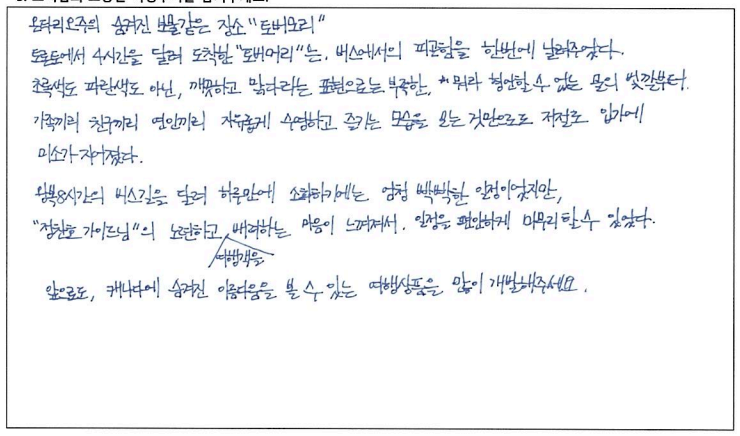 온타리오주의 숨겨진 보물같은 장소 "토버모리"
토론토에서 4시간을 달려 도착한 "토버머리"는, 버스에서의 피곤함을 한번에 날려주었다.
초록색도 파란색도 아닌, 깨끗하고 맑다라는 표현으로는 부족한, 뭐라 형언할 수 없는 물의 빛깔부터.
가족끼리 친구끼리 연인끼리 자유롭게 수영하고 즐기는 모습을 보는 것만으로도 저절로 입가에
미소가 지어졌다.
왕복8시간의 버스길을 달려 하루만에 소화하기에는 엄청 빡빡한 일정이었지만,
"정찬호 가이드님"의 노련하고 배려하는 마음이 느껴져서, 일정을 편안하게 마무리 할 수 있었다.
여행객을
앞으로도, 캐나다에 숨겨진 아름다움을 볼 수 있는 여행상품을 많이 개발해주세요.